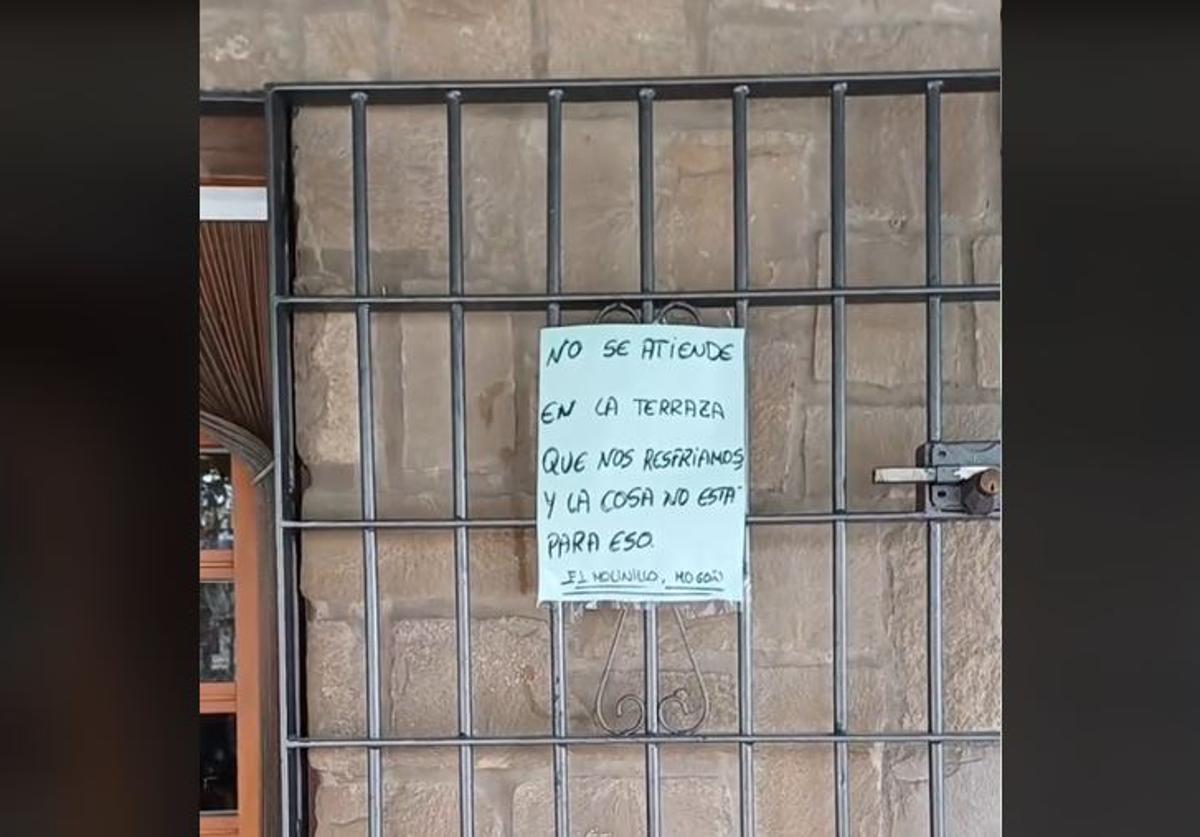 NO SE ATIENDE
EN LA TERRAZA
QUE NOS RESFRIAMOS
Y LA COSA NO ESTÁ
PARA ESO.
EL MOLINILLO, MOGÓN